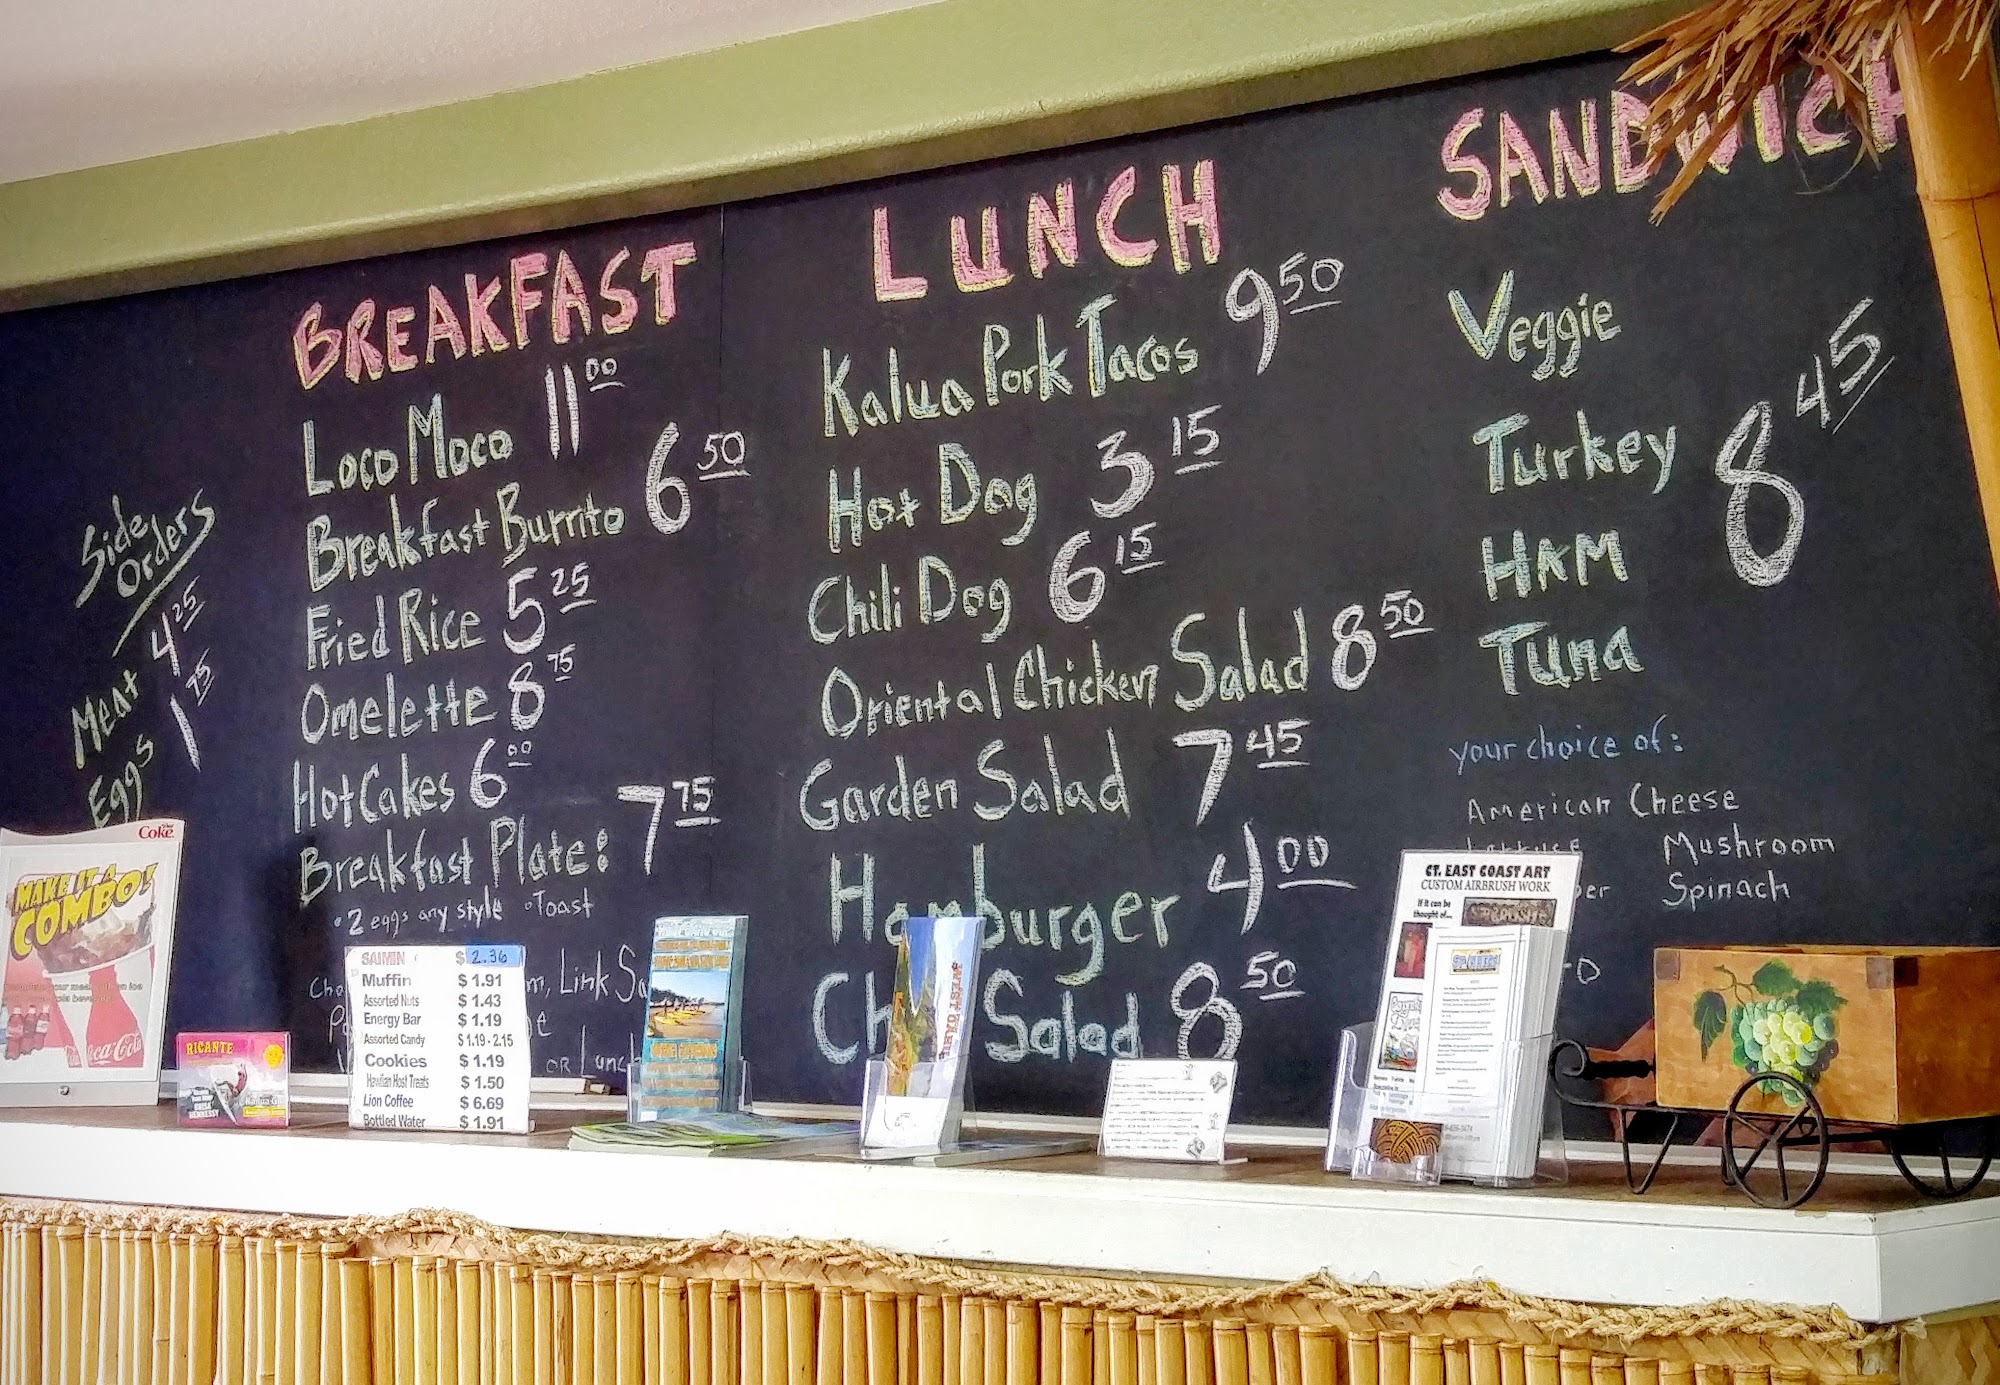 Side
Orders
Meat 4.25
Eggs 1.75
BREAKFAST
Loco Moco 11.00
Breakfast Burrito 6.50
Fried Rice 5.25
Omelette 8.75
Hot Cakes 6.00
Breakfast Plate: 7.75
• 2 eggs any style • Toast
Link
OR
LUNCH
Kalua Pork Tacos 9.50
Hot Dog 3.15
Chili Dog 6.15
Oriental Chicken Salad 8.50
Garden Salad 7.45
Hamburger 4.00
Salad 8.50
SANDWICH
Veggie
Turkey
HAM
Tuna
8.45
your choice of:
American Cheese
Mushroom
Spinach
Coke
MAKE IT A
COMBO!
Coca-Cola
RICANTE
SAIMIN $ 2.36
Muffin $ 1.91
Assorted Nuts $ 1.43
Energy Bar $ 1.19
Assorted Candy $ 1.19 - 2.15
Cookies $ 1.19
Hawiian Host Treats $ 1.50
Lion Coffee $ 6.69
Bottled Water $ 1.91
CT. EAST COAST ART
CUSTOM AIRBRUSH WORK
If it can be
thought of...